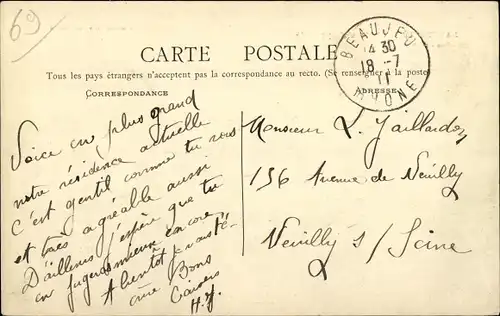 69
CARTE POSTALE
Tous les pays étrangers n'acceptent pas la correspondance au recto. (Se renseigner à la poste)
CORRESPONDANCE
ADRESSE
BEAUJEU
14 30
18 -7
11
RHONE
Voici en plus grand
notre résidence actuelle
C'est gentil comme tu vois
et très agréable aussi
D'ailleurs j'espère que tu
en jugeras mieux encore
A bientôt je vous
Bons
Baisers
H. J.
Monsieur L. Jaillardon
156 Avenue de Neuilly
Neuilly s/Seine